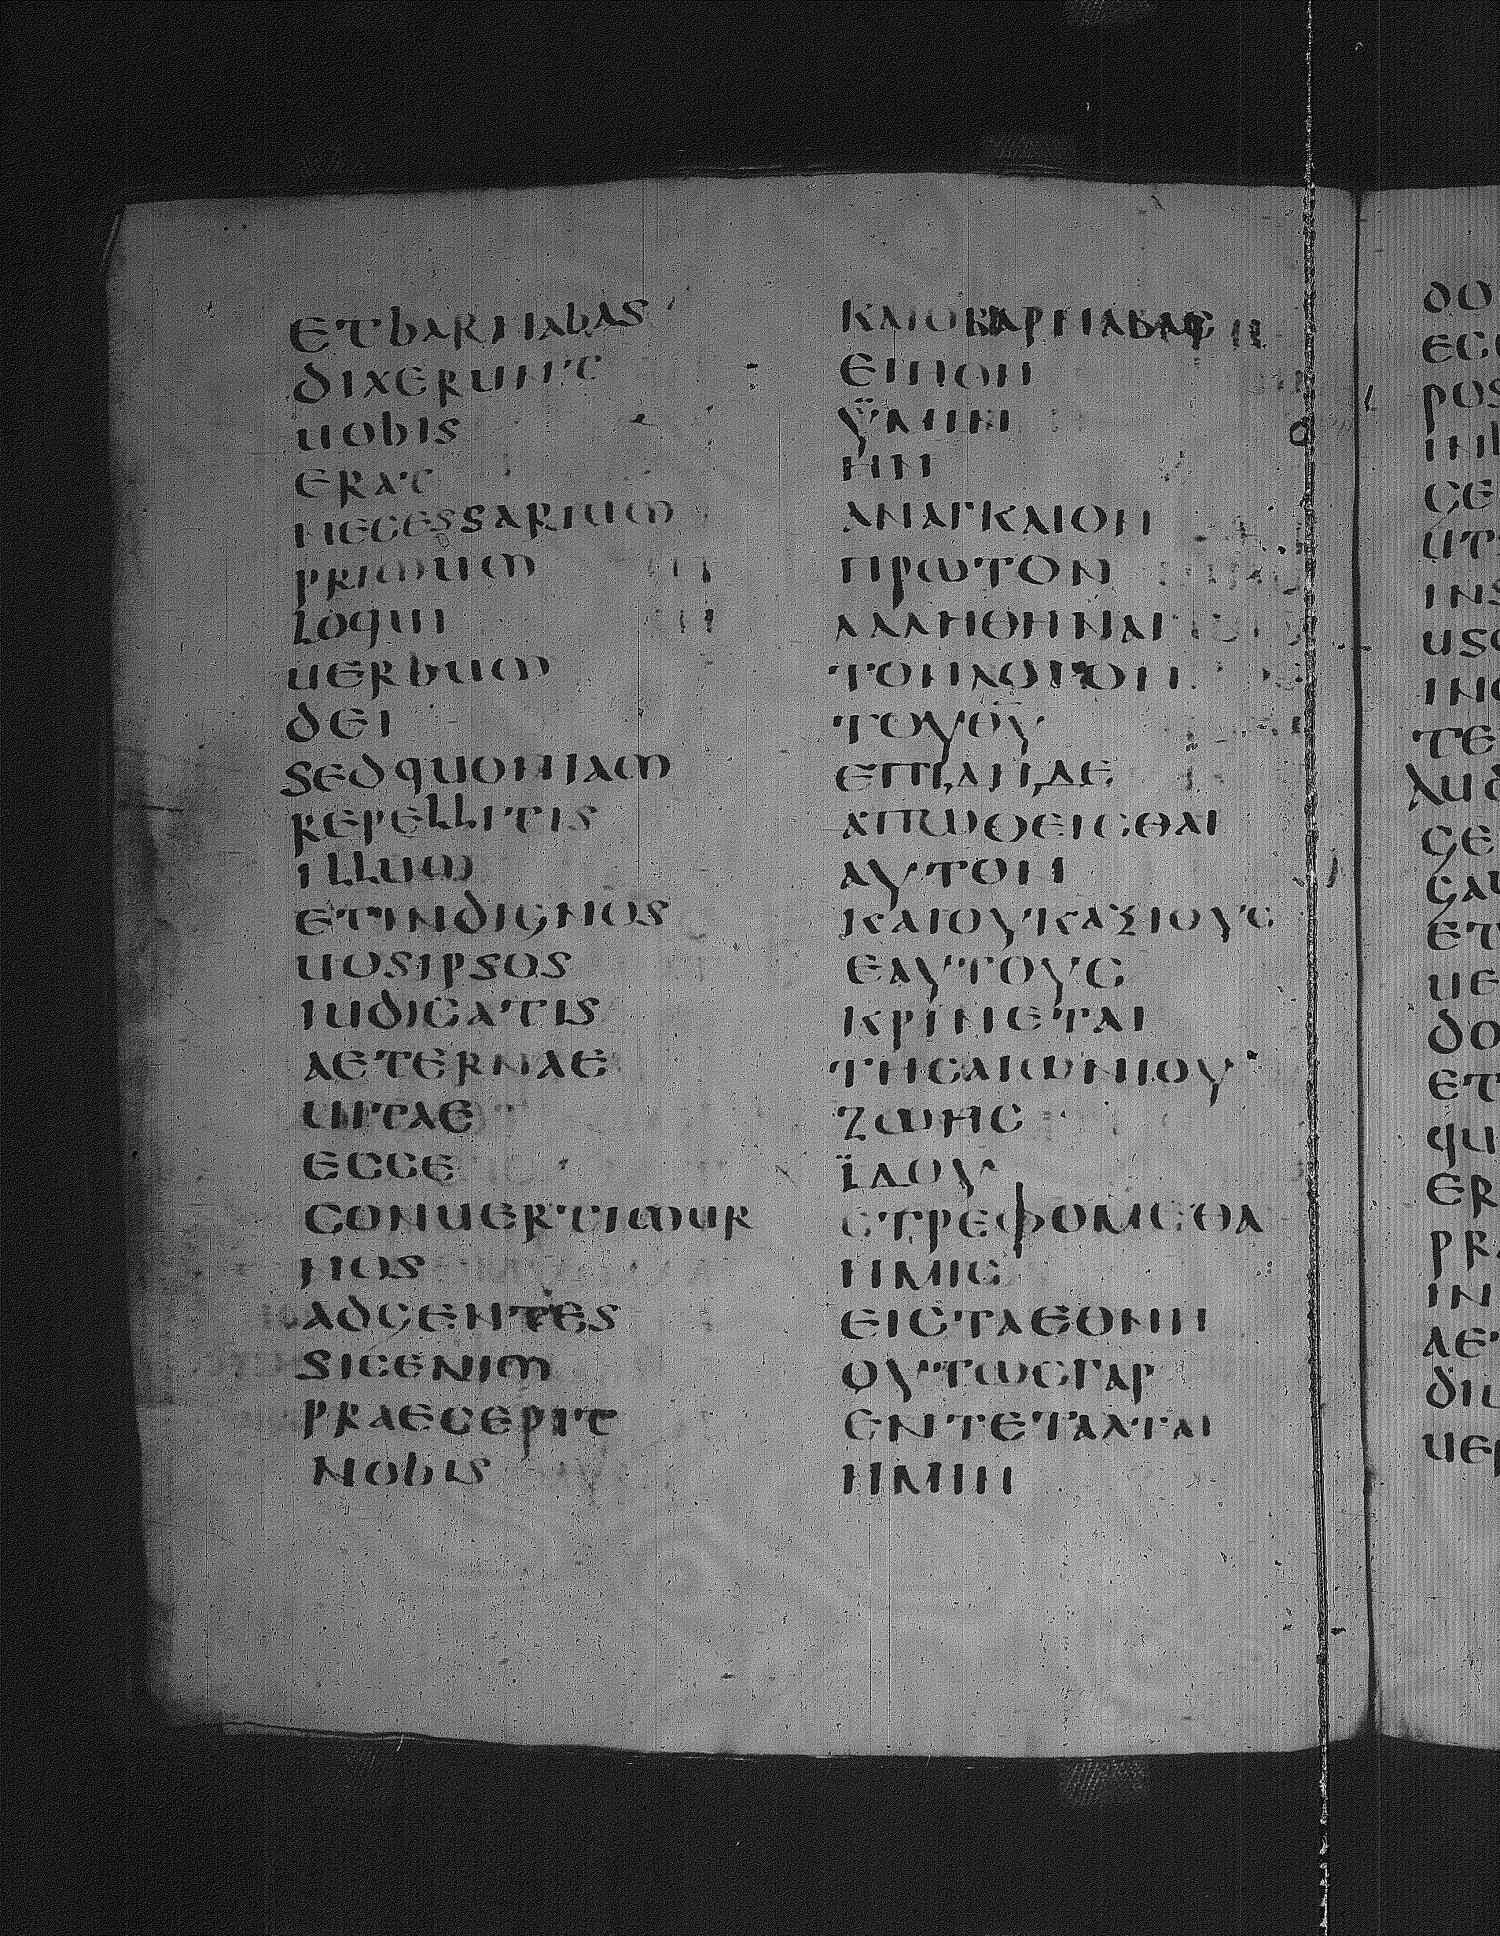 ETBARNABAS
DIXERUNT
UOBIS
ERAT
NECESSARIUM
PRIMUM
LOQUI
UERBUM
DEI
SEDQUONIAM
REPELLITIS
ILLUM
ETINDIGNOS
UOSIPSOS
IUDICATIS
AETERNAE
UITAE
ECCE
CONUERTIMUR
NOS
ADGENTES
SICENIM
PRAECEPIT
NOBIS
ΚΑΙΟΒΑΡΝΑΒΑϹ
ΕΙΠΟΝ
ΫΜΙΝ
ΗΝ
ΑΝΑΓΚΑΙΟΝ
ΠΡΩΤΟΝ
ΛΑΛΗΘΗΝΑΙ
ΤΟΝΛΟΓΟΝ
ΤΟΥΘΥ
ΕΠΙΔΗΔΕ
ΑΠΩΘΕΙϹΘΑΙ
ΑΥΤΟΝ
ΚΑΙΟΥΚΑΞΙΟΥϹ
ΕΑΥΤΟΥϹ
ΚΡΙΝΕΤΑΙ
ΤΗϹΑΙΩΝΙΟΥ
ΖΩΗϹ
ΪΔΟΥ
ϹΤΡΕΦΟΜΕΘΑ
ΗΜΙϹ
ΕΙϹΤΑΕΘΝΗ
ΟΥΤΩϹΓΑΡ
ΕΝΤΕΤΑΛΤΑΙ
ΗΜΙΝ